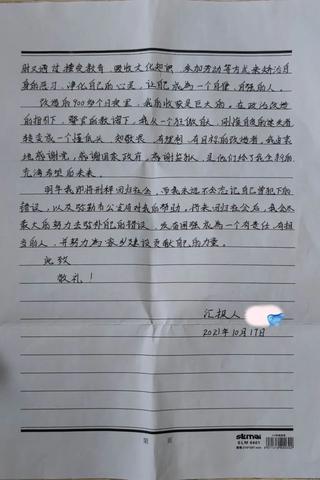 时又通过接受教育、吸收文化知识、参加劳动等方式来矫治自
身的恶习，净化自己的心灵，让自己成为一个自律、自强的人。
改造的900多个日夜里，我的收获是巨大的。在政治改造
的指引下，警官的教诲下，我从一个狂傲
转变成一个懂感恩、知敬畏、有理想、有目标的改造者，我由衷
地感谢党，感谢国家政府，感谢监狱，是他们给了我生命的
充满希望的未来。
明年我即将刑释回归社会，而我永远不会忘记自己曾犯下的
错误，以及张勤务公室有对我的帮助。将来回归社会后，我会尽
最大的努力去弥补自己的错误，发奋图强成为一个有责任、有担
当的人，并努力为家乡建设贡献自己的力量。
此致
敬礼！
汇报人
2021年10月17日
第 页
SLM 6401